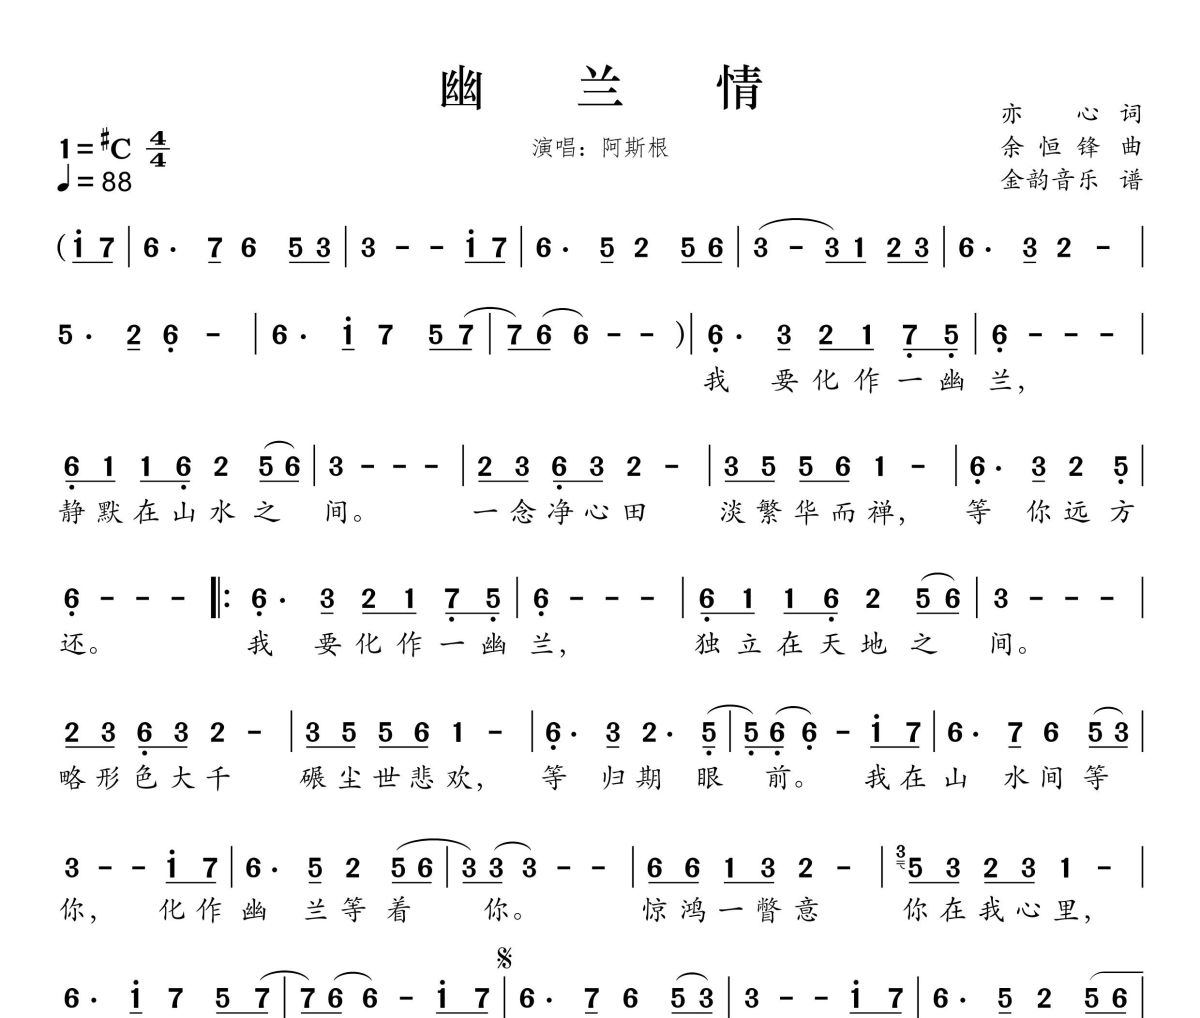 幽兰情
亦心词
1=♯C 4/4
演唱：阿斯根
余恒锋曲
♩=88
金韵音乐谱
(i 7 | 6· 7 6 5 3 | 3 - - i 7 | 6· 5 2 5 6 | 3 - 3 1 2 3 | 6· 3 2 - |
5· 2 6 - | 6· i 7 5 7 | 7 6 6 - - )| 6· 3 2 1 7 5 | 6 - - - |
我要化作一幽兰，
6 1 1 6 2 5 6 | 3 - - - | 2 3 6 3 2 - | 3 5 5 6 1 - | 6· 3 2 5 |
静默在山水之间。一念净心田淡繁华而禅，等你远方
6 - - - ‖: 6· 3 2 1 7 5 | 6 - - - | 6 1 1 6 2 5 6 | 3 - - - |
还。我要化作一幽兰，独立在天地之间。
2 3 6 3 2 - | 3 5 5 6 1 - | 6· 3 2· 5 | 5 6 6 - i 7 | 6· 7 6 5 3 |
略形色大千碾尘世悲欢，等归期眼前。我在山水间等
3 - - i 7 | 6· 5 2 5 6 | 3 3 3 - - | 6 6 1 3 2 - | 3 5 3 2 3 1 - |
你，化作幽兰等着你。惊鸿一瞥意你在我心里，
6· i 7 5 7 | 7 6 6 - i 7 | 6· 7 6 5 3 | 3 - - i 7 | 6· 5 2 5 6 |